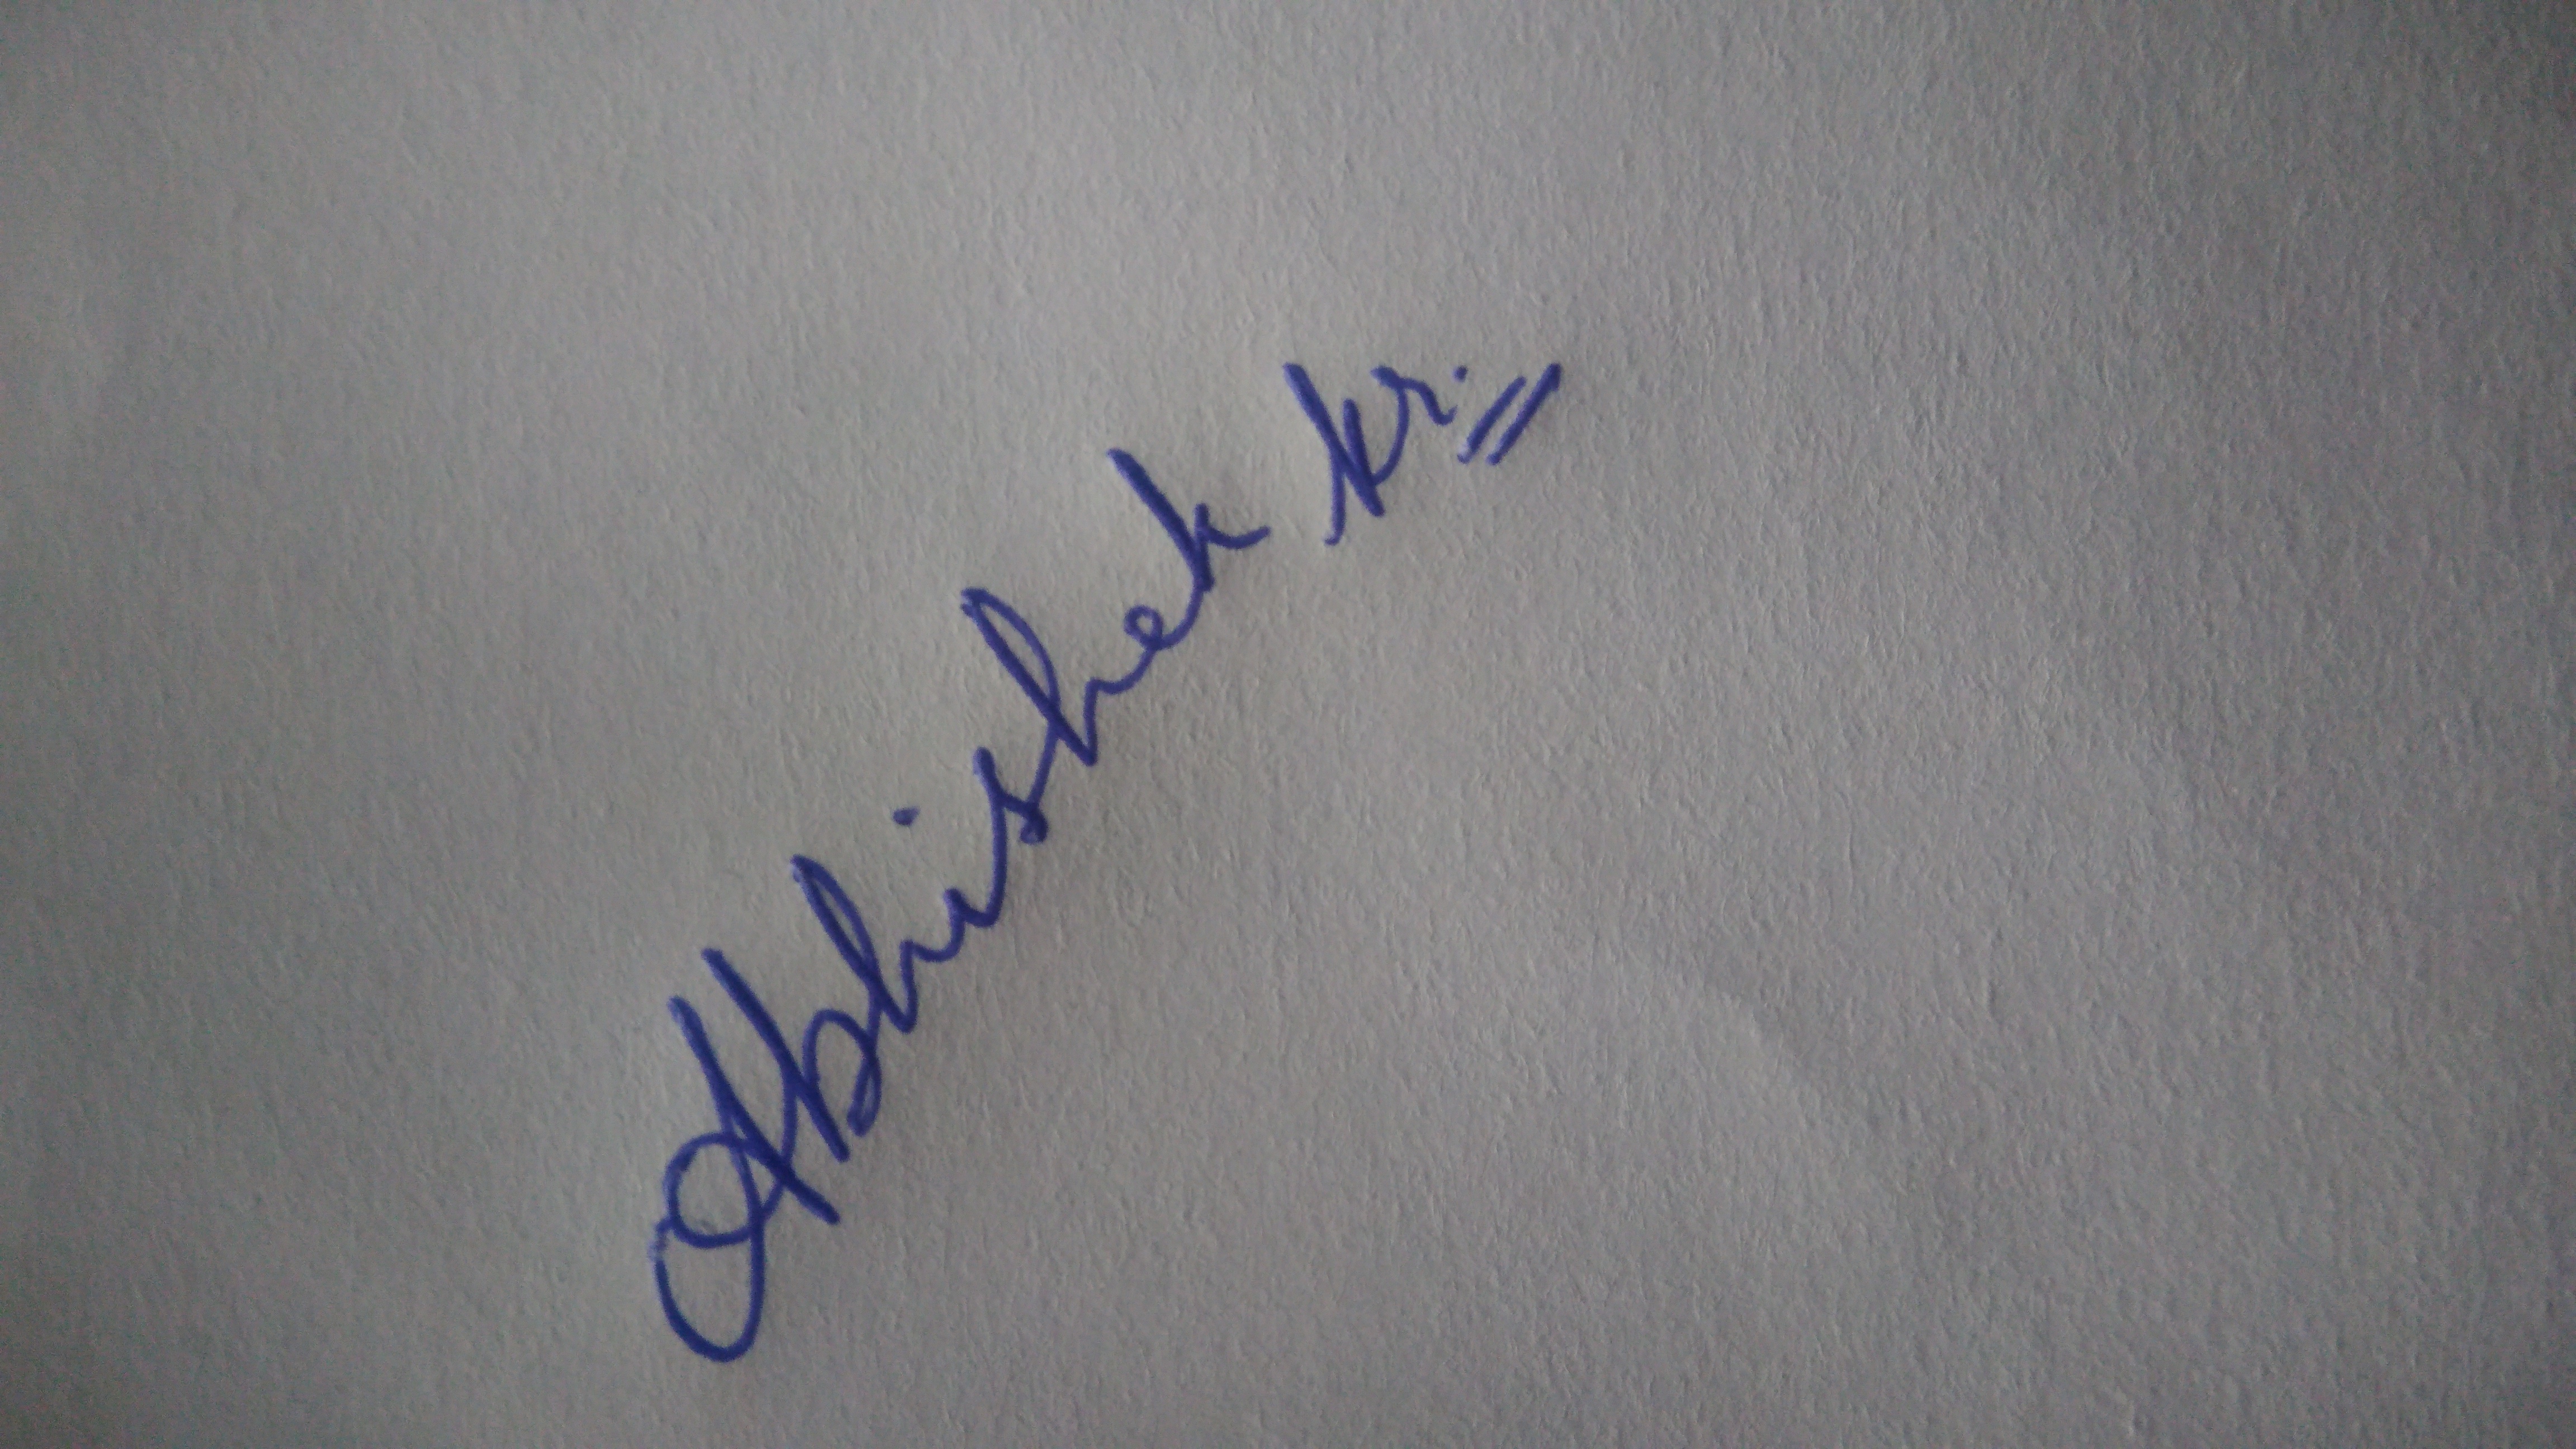 Abhishek kr.